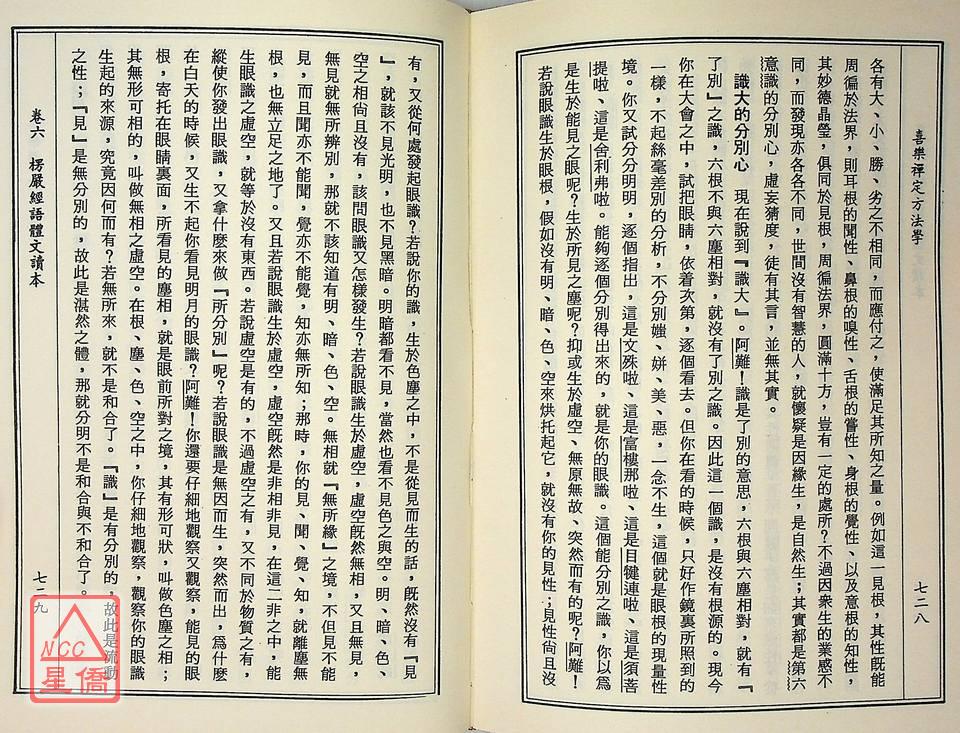 喜樂禪定方法學
七二八
各有大、小、勝、劣之不相同，而應付之，使滿足其所知之量。例如這一見根，其性既能
周徧於法界，則耳根的聞性、鼻根的嗅性、舌根的嘗性、身根的覺性、以及意根的知性，
其妙德晶瑩，俱同於見根，周徧法界，圓滿十方，豈有一定的處所？不過因衆生的業感不
同，而發現亦各各不同，世間沒有智慧的人，就懷疑是因緣生，是自然生；其實都是第六
意識的分別心，虛妄猜度，徒有其言，並無其實。
識大的分別心　現在說到『識大』。阿難！識是了別的意思，六根與六塵相對，就有『
了別』之識，六根不與六塵相對，就沒有了別之識。因此這一個識，是沒有根源的。現今
你在大會之中，試把眼睛，依着次第，逐個看去。但你在看的時候，只好作鏡裏所照到的
一樣，不起絲毫差別的分析，不分別媸、妍、美、惡，一念不生，這個就是眼根的現量性
境。你又試分分明明，逐個指出，這是文殊啦、這是富樓那啦、這是目犍連啦、這是須菩
提啦、這是舍利弗啦。能夠逐個分別得出來的，就是你的眼識。這個能分別之識，你以爲
是生於能見之眼呢？生於所見之塵呢？抑或生於虛空、無原無故、突然而有的呢？阿難！
若說眼識生於眼根，假如沒有明、暗、色、空來烘托起它，就沒有你的見性；見性尙且沒
有，又從何處發起眼識？若說你的識，生於色塵之中，不是從見而生的話，既然沒有『見
』，就該不見光明，也不見黑暗。明暗都看不見，當然也看不見色之與空。明、暗、色、
空之相尙且沒有，該問眼識又怎樣發生？若說眼識生於虛空，虛空既然無相，又且無見，
無見就無所辨別，那就不該知道有明、暗、色、空。無相就『無所緣』之境，不但見不能
見，而且聞亦不能聞，覺亦不能覺，知亦無所知；那時，你的見、聞、覺、知，就離塵無
根，也無立足之地了。又且若說眼識生於虛空，虛空既然是非相非見，在這二非之中，能
生眼識之虛空，就等於沒有東西。若說虛空是有的，不過虛空之有，又不同於物質之有，
縱使你發出眼識，又拿什麼來做『所分別』呢？若說眼識是無因而生，突然而出，爲什麼
在白天的時候，又生不起你看見明月的眼識？阿難！你還要仔細地觀察又觀察，能見的眼
根，寄托在眼睛裏面，所看見的塵相，就是眼前所對之境，其有形可狀，叫做色塵之相；
其無形可相的，叫做無相之虛空。在根、塵、色、空之中，你仔細地觀察，觀察你的眼識
生起的來源，究竟因何而有？若無所來，就不是和合了。『識』是有分別的，故此是流動
之性；『見』是無分別的，故此是湛然之體，那就分明不是和合與不和合了。
卷六　楞嚴經語體文讀本
七二九
NCC
星僑